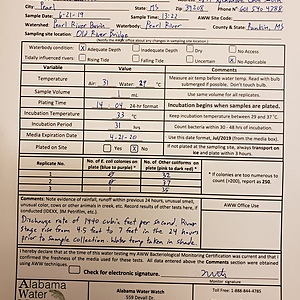 City Pearl State: MS Zip 39208 Phone # 601 540 4788
Sample Date: 6-21-19 Sample Time: 13:22 AWW Site Code:
Watershed: Pearl River Basin Waterbody: Pearl River County & State Rankin, MS
Sampling site location: Old River Bridge
(Notify the AWW office about any changes in sampling site location)
Waterbody condition: X Adequate Depth Inadequate Depth Dry No Access
Tidally influenced rivers: Rising Tide Falling Tide Uncertain X Not Applicable
Variable Value Comments
Temperature Air: 31 Water: 29 °C Measure air temp before water temp. Read with bulb submerged if possible. Don't touch bulb.
Sample Volume mL Use same volume for all samples.
Plating Time 14 : 04 24-hr format Incubation begins when samples are plated.
Incubation Temperature 33 °C Keep incubation temperature between 29 and 37 C.
Incubation Period 31 hrs Count bacteria within 30 - 48 hrs of incubation.
Media Expiration Date 4-21-20 Use this date format, Jul/2019 (from the media box).
Plated on Site Yes X No If samples are not plated at site, always transport on ice and plate within 3 hours.
Replicate No. # E. coli colonies on plate (blue to purple) * # Other coliforms on plate (pink to dark red) *
* If colonies are too numerous to count (>200), report as 250.
Comments: Note evidence of rainfall, runoff within previous 24 hours, unusual smell, unusual color, cows or other animals in creek, etc. Record results of other tests here, if conducted (IDEXX, 3M Petrifilm, etc.)
AWW Office Use
Discharge rate of 7940 cubic feet per second, River
stage rise from 4.5 feet to 7 feet in the 24 hours
prior to sample collection. Water temp taken in shade.
I hereby declare that at the time of this water testing my AWW Bacteriological Monitoring Certification was current and that I confirmed the freshness of the media used for these tests. All data entered above the Comments section were obtained using AWW techniques.
Check for electronic signature.
Alabama Water Watch
559 Devall Dr.
Toll Phone: 1-888-844-4785
Alabama
Water